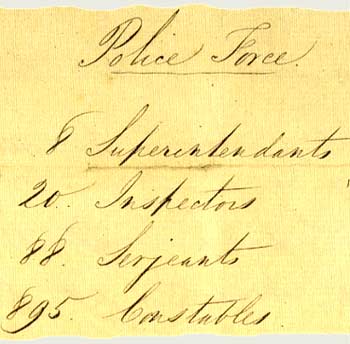 Police Force.
8 Superintendants
20. Inspectors
88. Serjeants
895. Constables.